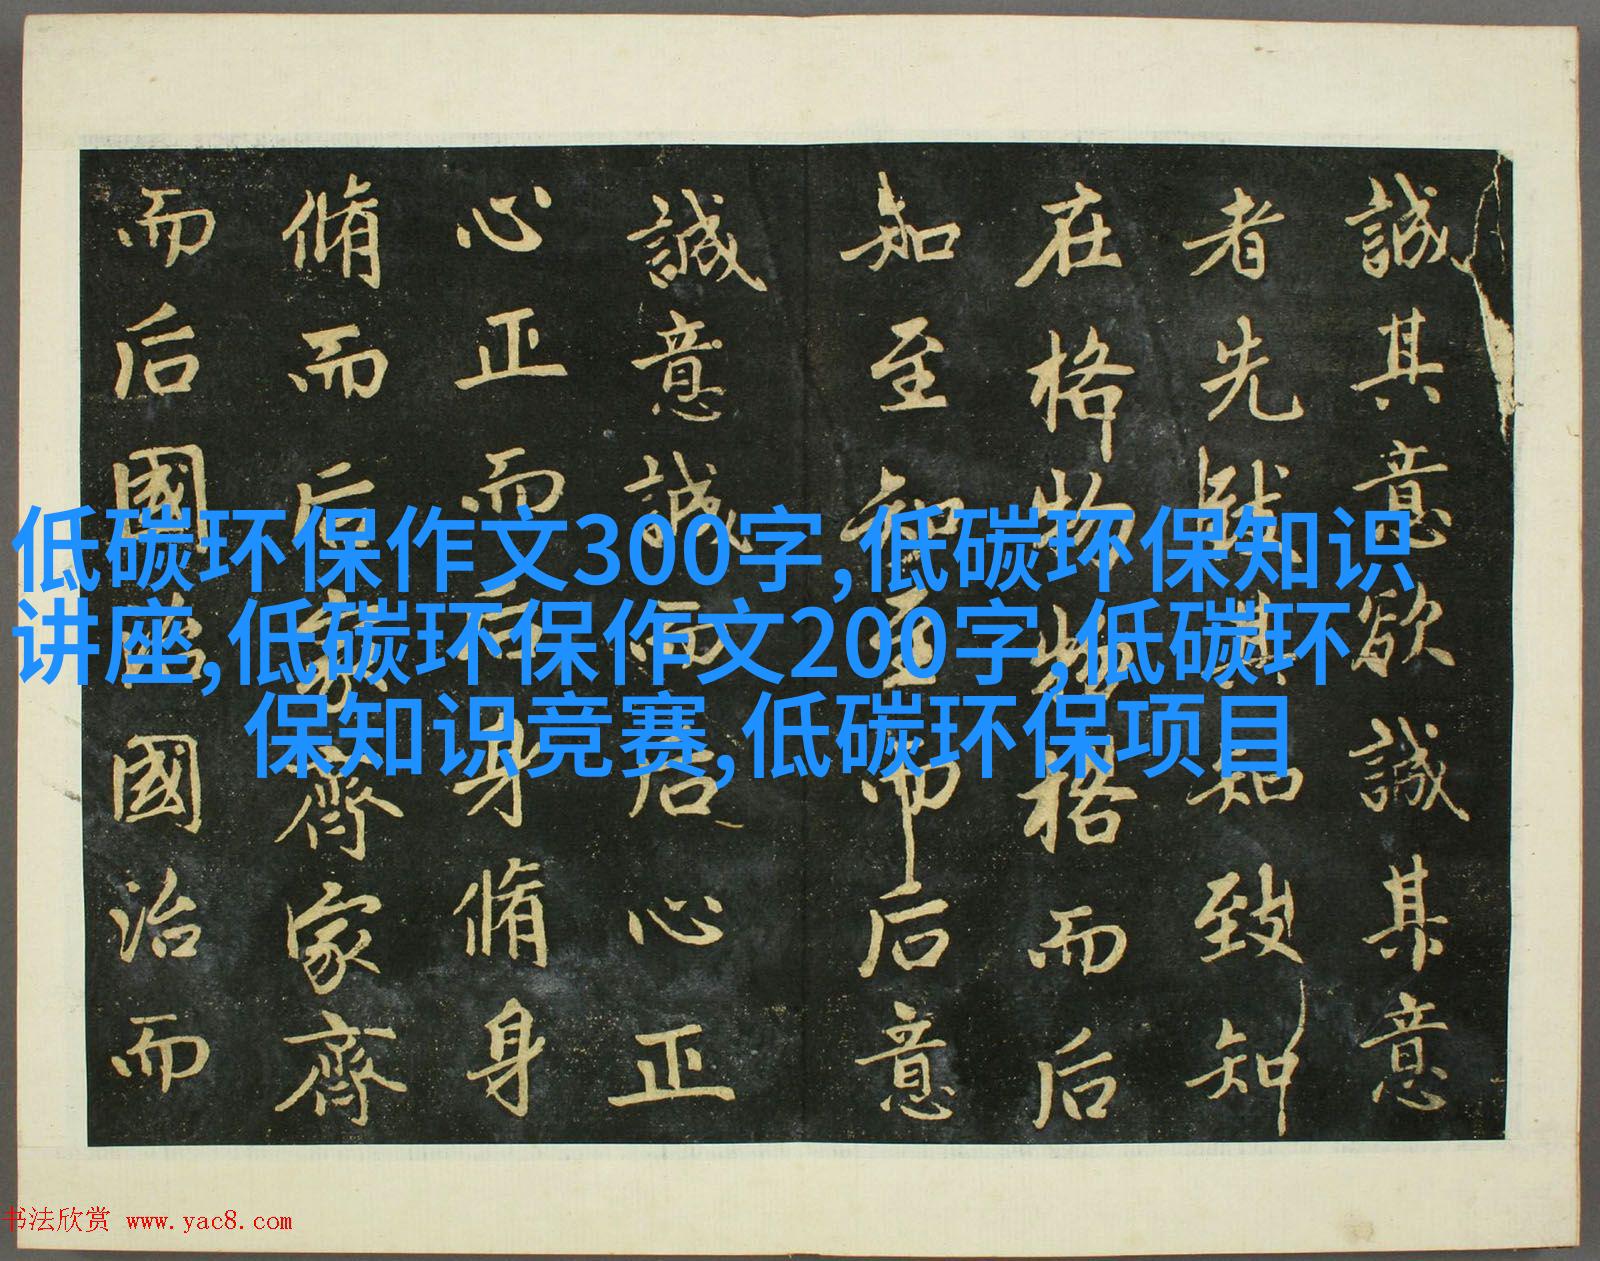 誠其意欲誠其意
者先致其知致知
在格物物格而后
知至知至而后意
誠意誠而后心正
心正而后身脩身
脩而后家齊家齊
而后國治國治而
低碳环保作文300字,低碳环保知识
讲座,低碳环保作文200字,低碳环
保知识竞赛,低碳环保项目
书法欣赏 www.yac8.com